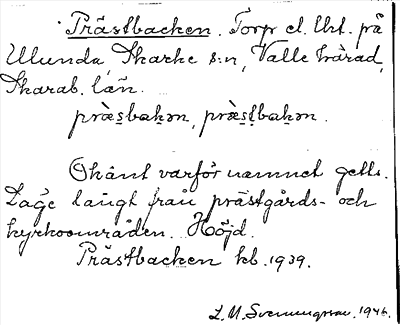 Prästbacken. Torp el. lht. på
Ulunda, Skarke s:n, Valle härad,
Skarab. län.
præsbakən, præstbakən.
Okänt varför namnet getts.
Läge långt från prästgårds- och
kyrkoområden. Höjd.
Prästbacken kb. 1939.
L. M. Svenungsson. 1946.